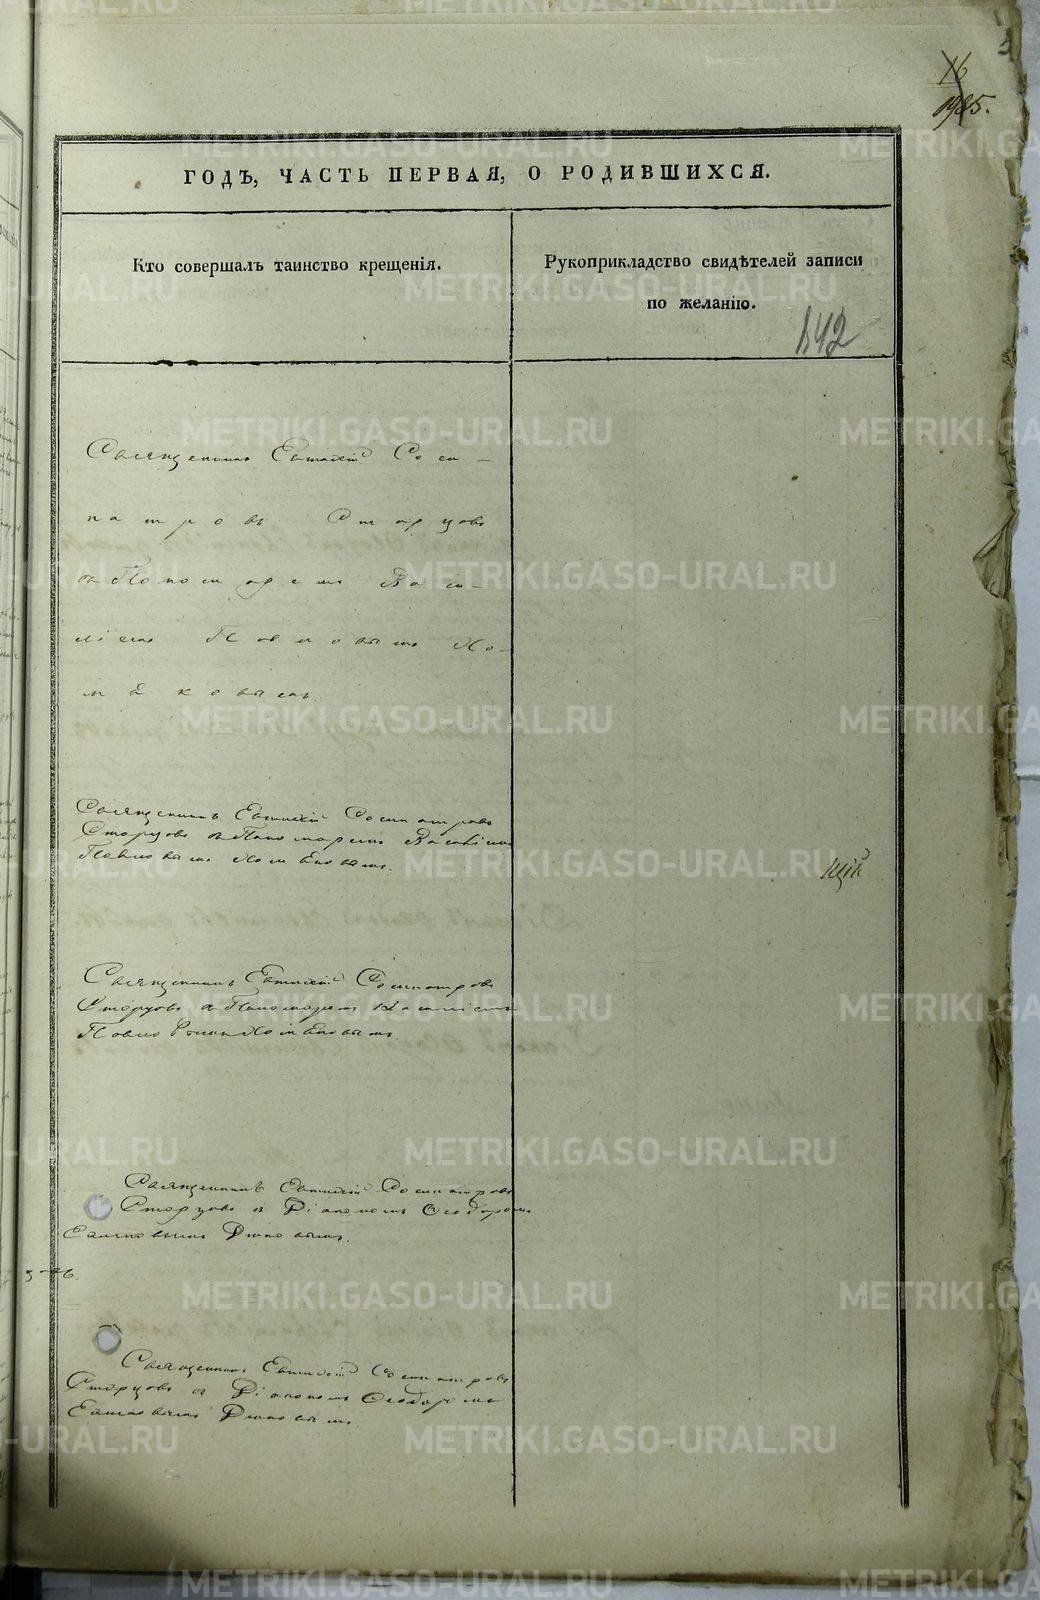 16
ГОДЪ, ЧАСТЬ ПЕРВАЯ, О РОДИВШИХСЯ.
Кто совершалъ таинство крещенія.
Рукоприкладство свидѣтелей записи
по желанію.
142
Священникъ Евѳимій Соси-
патровъ Старцовъ
съ Пономаремъ Васи-
ліемъ Павловымъ Хо-
мѣковымъ.
Священникъ Евѳимій Сосипатровъ
Старцовъ съ Пономаремъ Василіемъ
Павловымъ Хомѣковымъ.
Священникъ Евѳимій Сосипатровъ
Старцовъ съ Пономаремъ Василіемъ
Павловымъ Хомѣковымъ.
Священникъ Евѳимій Сосипатровъ
Старцовъ съ Діакономъ Ѳеодоромъ
Священникъ Евѳимій Сосипатровъ
Старцовъ съ Діакономъ Ѳеодоромъ
METRIKI.GASO-URAL.RU